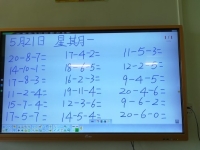 5月21日 星期一
20-8-7= 17-4-2= 11-5-3=
14-10-1= 18-6-5= 12-2-5=
17-8-3= 16-2-3= 9-4-5=
11-2-4= 19-11-4= 20-4-6=
15-7-4= 12-3-6= 9-6-2=
17-5-7= 14-5-4= 20-6-0=